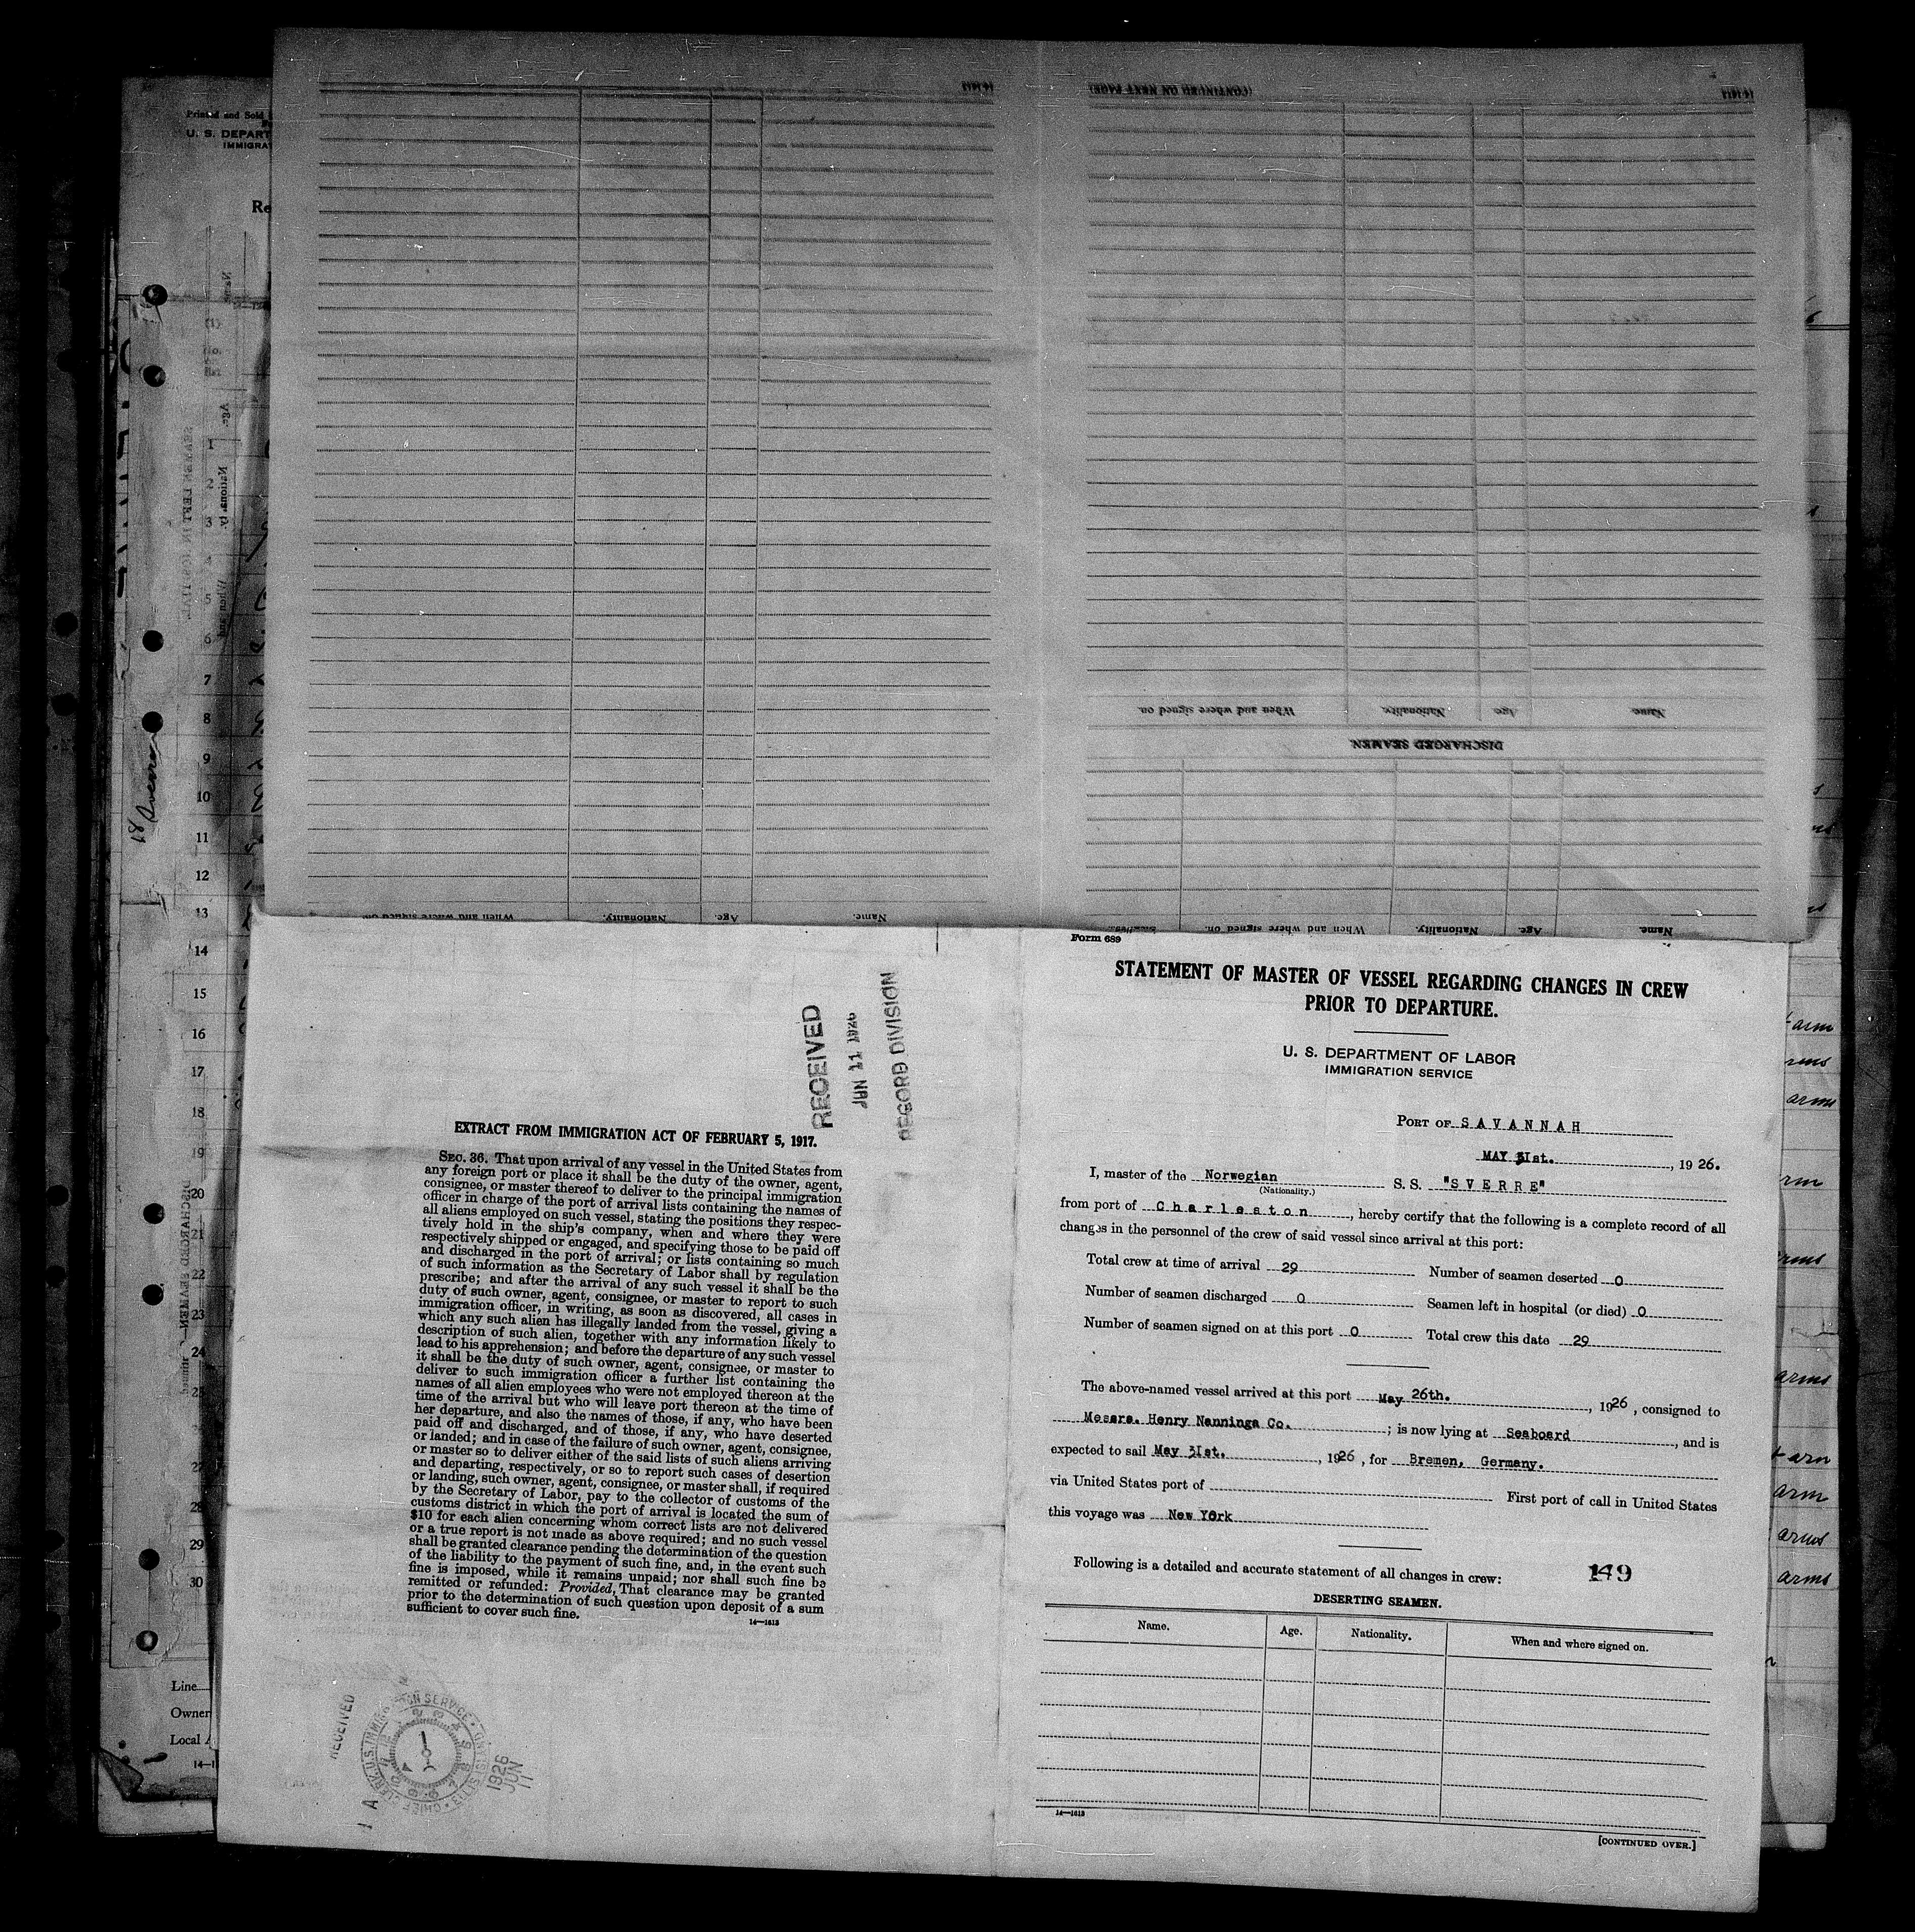 Printed and Sold
U. S. DEPART
IMMIGRA
Re
18 Sverre
1
2
3
4
5
6
7
8
9
10
11
12
13
14
15
16
17
18
19
20
21
22
23
24
25
27
28
29
30
Line
Owner
Local
14—1
14-1613
(CONTINUED ON NEXT PAGE)
14-1613
Name. Age. Nationality. When and where signed on.
DISCHARGED SEAMEN
Name. Age. Nationality. When and where signed on.
Name. Age. Nationality. When and where signed on.
RECEIVED
JUN 11 1926
RECORD DIVISION
EXTRACT FROM IMMIGRATION ACT OF FEBRUARY 5, 1917.
SEC. 36. That upon arrival of any vessel in the United States from
any foreign port or place it shall be the duty of the owner, agent,
consignee, or master thereof to deliver to the principal immigration
officer in charge of the port of arrival lists containing the names of
all aliens employed on such vessel, stating the positions they respec-
tively hold in the ship's company, when and where they were
respectively shipped or engaged, and specifying those to be paid off
and discharged in the port of arrival; or lists containing so much
of such information as the Secretary of Labor shall by regulation
prescribe; and after the arrival of any such vessel it shall be the
duty of such owner, agent, consignee, or master to report to such
immigration officer, in writing, as soon as discovered, all cases in
which any such alien has illegally landed from the vessel, giving a
description of such alien, together with any information likely to
lead to his apprehension; and before the departure of any such vessel
it shall be the duty of such owner, agent, consignee, or master to
deliver to such immigration officer a further list containing the
names of all alien employees who were not employed thereon at the
time of the arrival but who will leave port thereon at the time of
her departure, and also the names of those, if any, who have been
paid off and discharged, and of those, if any, who have deserted
or landed; and in case of the failure of such owner, agent, consignee,
or master so to deliver either of the said lists of such aliens arriving
and departing, respectively, or so to report such cases of desertion
or landing, such owner, agent, consignee, or master shall, if required
by the Secretary of Labor, pay to the collector of customs of the
customs district in which the port of arrival is located the sum of
$10 for each alien concerning whom correct lists are not delivered
or a true report is not made as above required; and no such vessel
shall be granted clearance pending the determination of the question
of the liability to the payment of such fine, and, in the event such
fine is imposed, while it remains unpaid; nor shall such fine be
remitted or refunded: Provided, That clearance may be granted
prior to the determination of such question upon deposit of a sum
sufficient to cover such fine.
14—1613
RECEIVED
1926
JUN
11
Form 689
STATEMENT OF MASTER OF VESSEL REGARDING CHANGES IN CREW
PRIOR TO DEPARTURE.
U. S. DEPARTMENT OF LABOR
IMMIGRATION SERVICE
PORT OF SAVANNAH
MAY 3Ist. , 1926.
I, master of the Norwegian S.S. "SVERRE"
(Nationality.)
from port of Charleston, hereby certify that the following is a complete record of all
changes in the personnel of the crew of said vessel since arrival at this port:
Total crew at time of arrival 29 Number of seamen deserted 0
Number of seamen discharged 0 Seamen left in hospital (or died) 0
Number of seamen signed on at this port 0 Total crew this date 29
The above-named vessel arrived at this port May 26th. , 1926, consigned to
Messrs. Henry Nanninga Co. ; is now lying at Seaboard , and is
expected to sail May 3Ist. , 1926, for Bremen, Germany.
via United States port of First port of call in United States
this voyage was New York
Following is a detailed and accurate statement of all changes in crew: 149
DESERTING SEAMEN.
Name. Age. Nationality. When and where signed on.
14—1613
[CONTINUED OVER.]
arm
arms
arms
arm
arms
arms
arm
arm
arms
arms